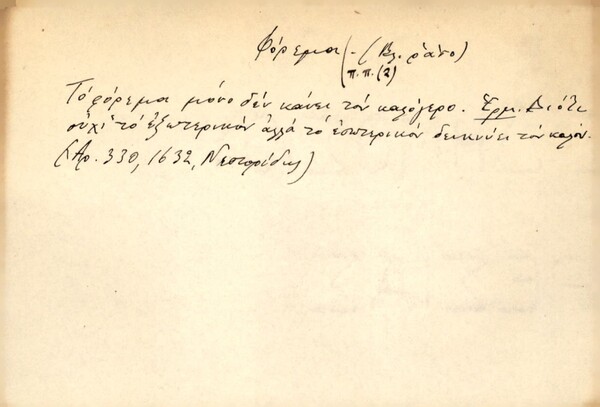 Φόρεμα - (Βλ. ράσο)
π.π. (2)
Τό φόρεμα μόνο δέν κάνει τόν καλόγερο. Ἑρμ. Διότι
οὐχί τό ἐξωτερικόν ἀλλά τό ἐσωτερικόν δεικνύει τόν καλόν.
(Αρ. 330, 1632, Νεστορίδης)